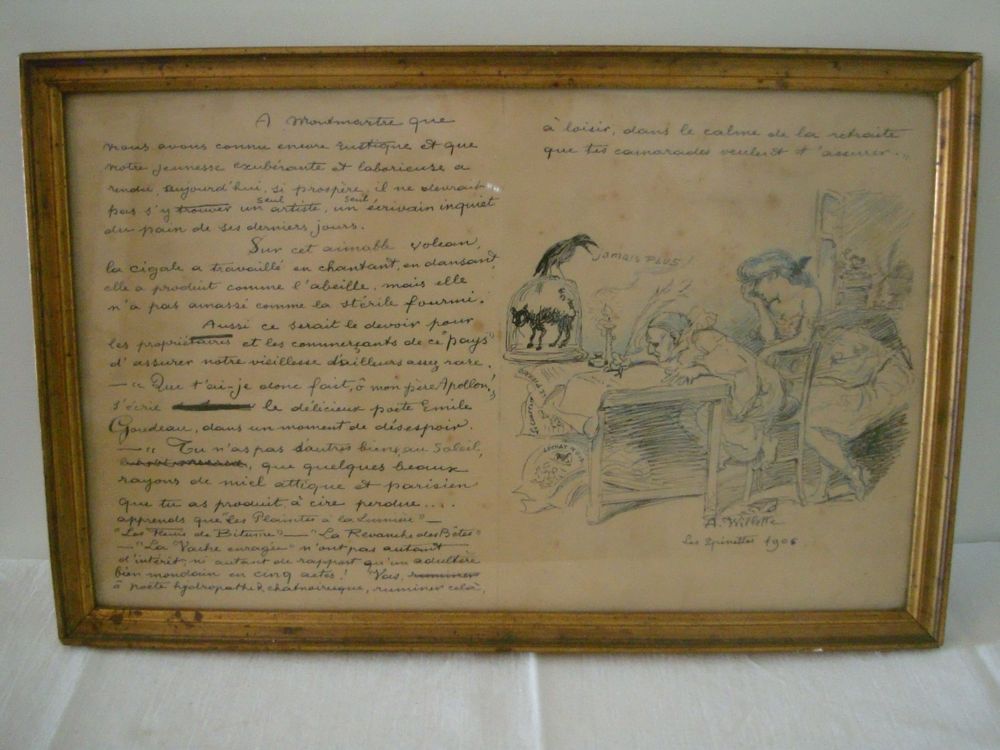 A Montmartre que
nous avons connu encore rustique et que
notre jeunesse exubérante et laborieuse a
rendu, aujourd'hui, si prospère, il ne devrait
pas s'y trouver un seul artiste, un seul écrivain inquiet
du pain de ses derniers jours.
Sur cet aimable volcan,
la cigale a travaillé en chantant, en dansant,
elle a produit comme l'abeille, mais elle
n'a pas amassé comme la stérile fourmi.
Aussi ce serait le devoir pour
les propriétaires et les commerçants de ce "pays"
d'assurer notre vieillesse d'ailleurs assez rare.
— "Que t'ai-je donc fait, ô mon père Apollon",
s'écrie le délicieux poète Emile
Goudeau, dans un moment de désespoir.
— "Tu n'as pas d'autres biens, au Soleil,
que quelques beaux
rayons de miel attique et parisien
que tu as produit, à cire perdue....
apprends que "Les Plaintes à la Lumière" —
"Les Fleurs de Bitume" — "La Revanche des Bêtes"
— "La Vache enragée" n'ont pas autant
d'intérêt, ni autant de rapport qu'un adultère
bien mondain en cinq actes! Vas, ruminer
ô poète hydropathe & chatnoiresque, ruminer cela,
à loisir, dans le calme de la retraite
que tes camarades veulent t'assurer...
jamais PLUS!
A. Willette
Les Epinettes 1906